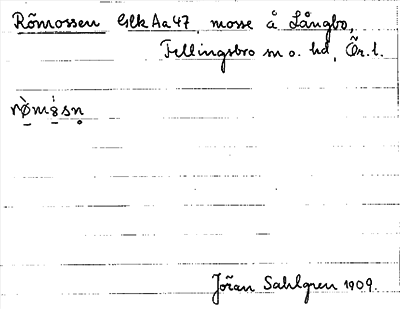 Römossen Glk Aa47, mosse å Långbo,
Fellingsbro sn o. hd, Ör. l.
Jöran Sahlgren 1909.